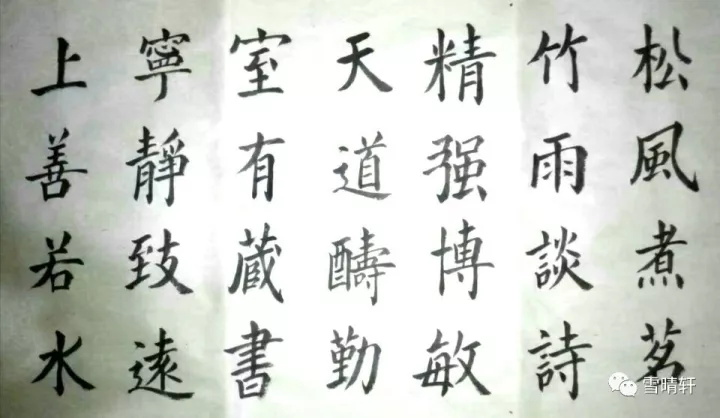 松風煮茗
竹雨談詩
精强博敏
天道醻勤
室有蔵書
寧靜致遠
上善若水
雪晴轩